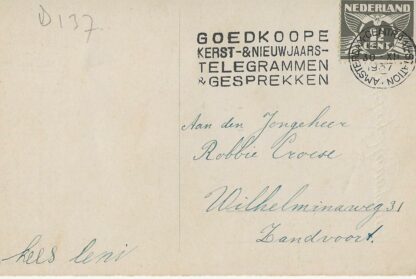 D 137.
GOEDKOOPE
KERST-&NIEUWJAARS-
TELEGRAMMEN
& GESPREKKEN
NEDERLAND
CENT
1937
Aan den Jongeheer
Robbie Croese
Wilhelminaweg 31
Zandvoort.
Kees Leni